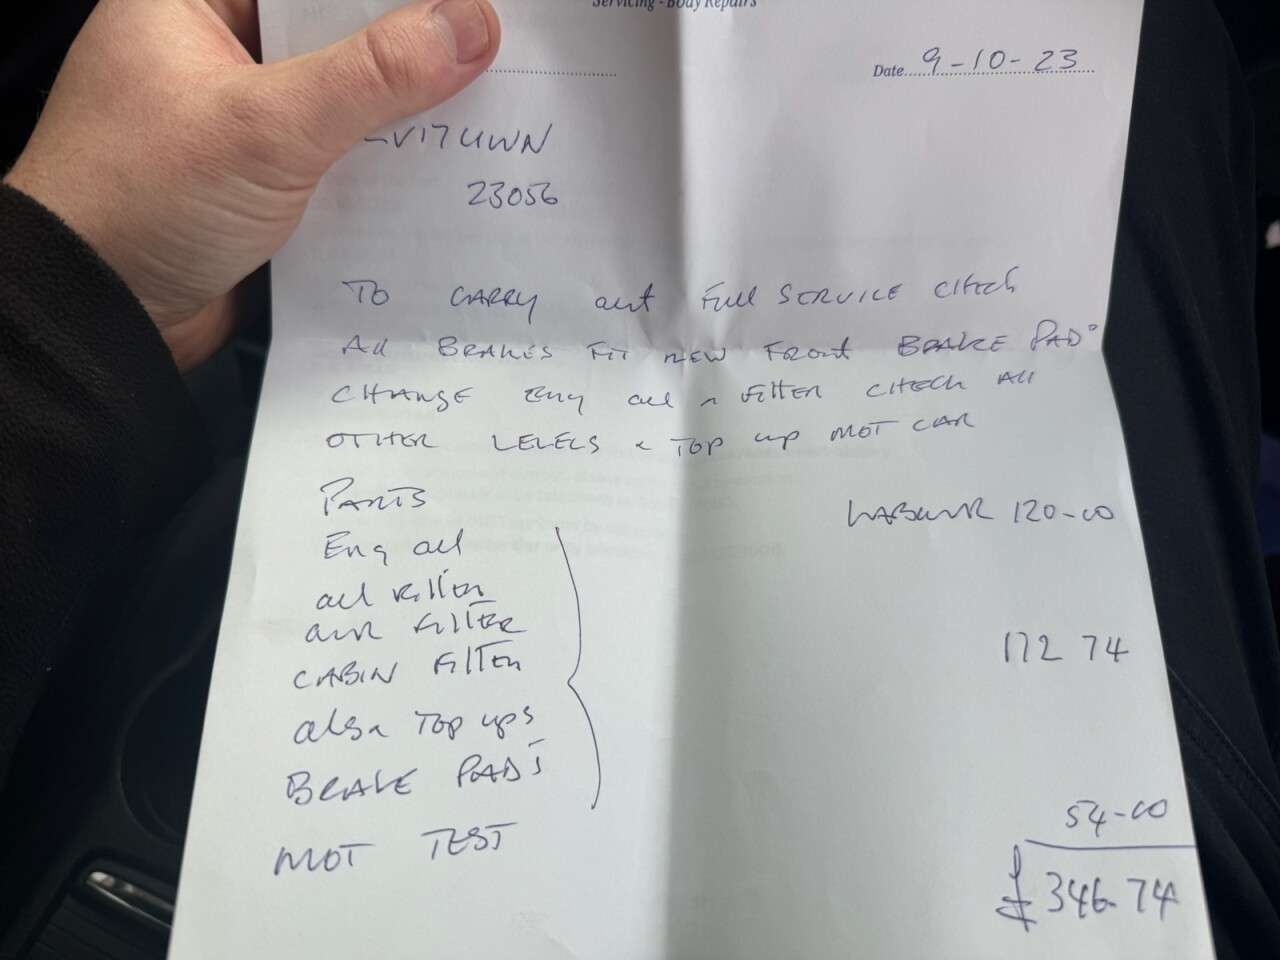 Servicing - Body Repairs
Date 9-10-23
V17UWN
23056
TO CARRY out Full SERVICE CHECK
All BRAKES FIT NEW Front BRAKE PADS
CHANGE Eng oil & Filter CHECK All
OTHER LEVELS & TOP up MOT CAR
PARTS
LABOUR 120-00
Eng oil
oil Filter
air FilTER
CABIN FilTER
172 74
also Top ups
BRAKE PADS
54-00
MOT TEST
£346-74